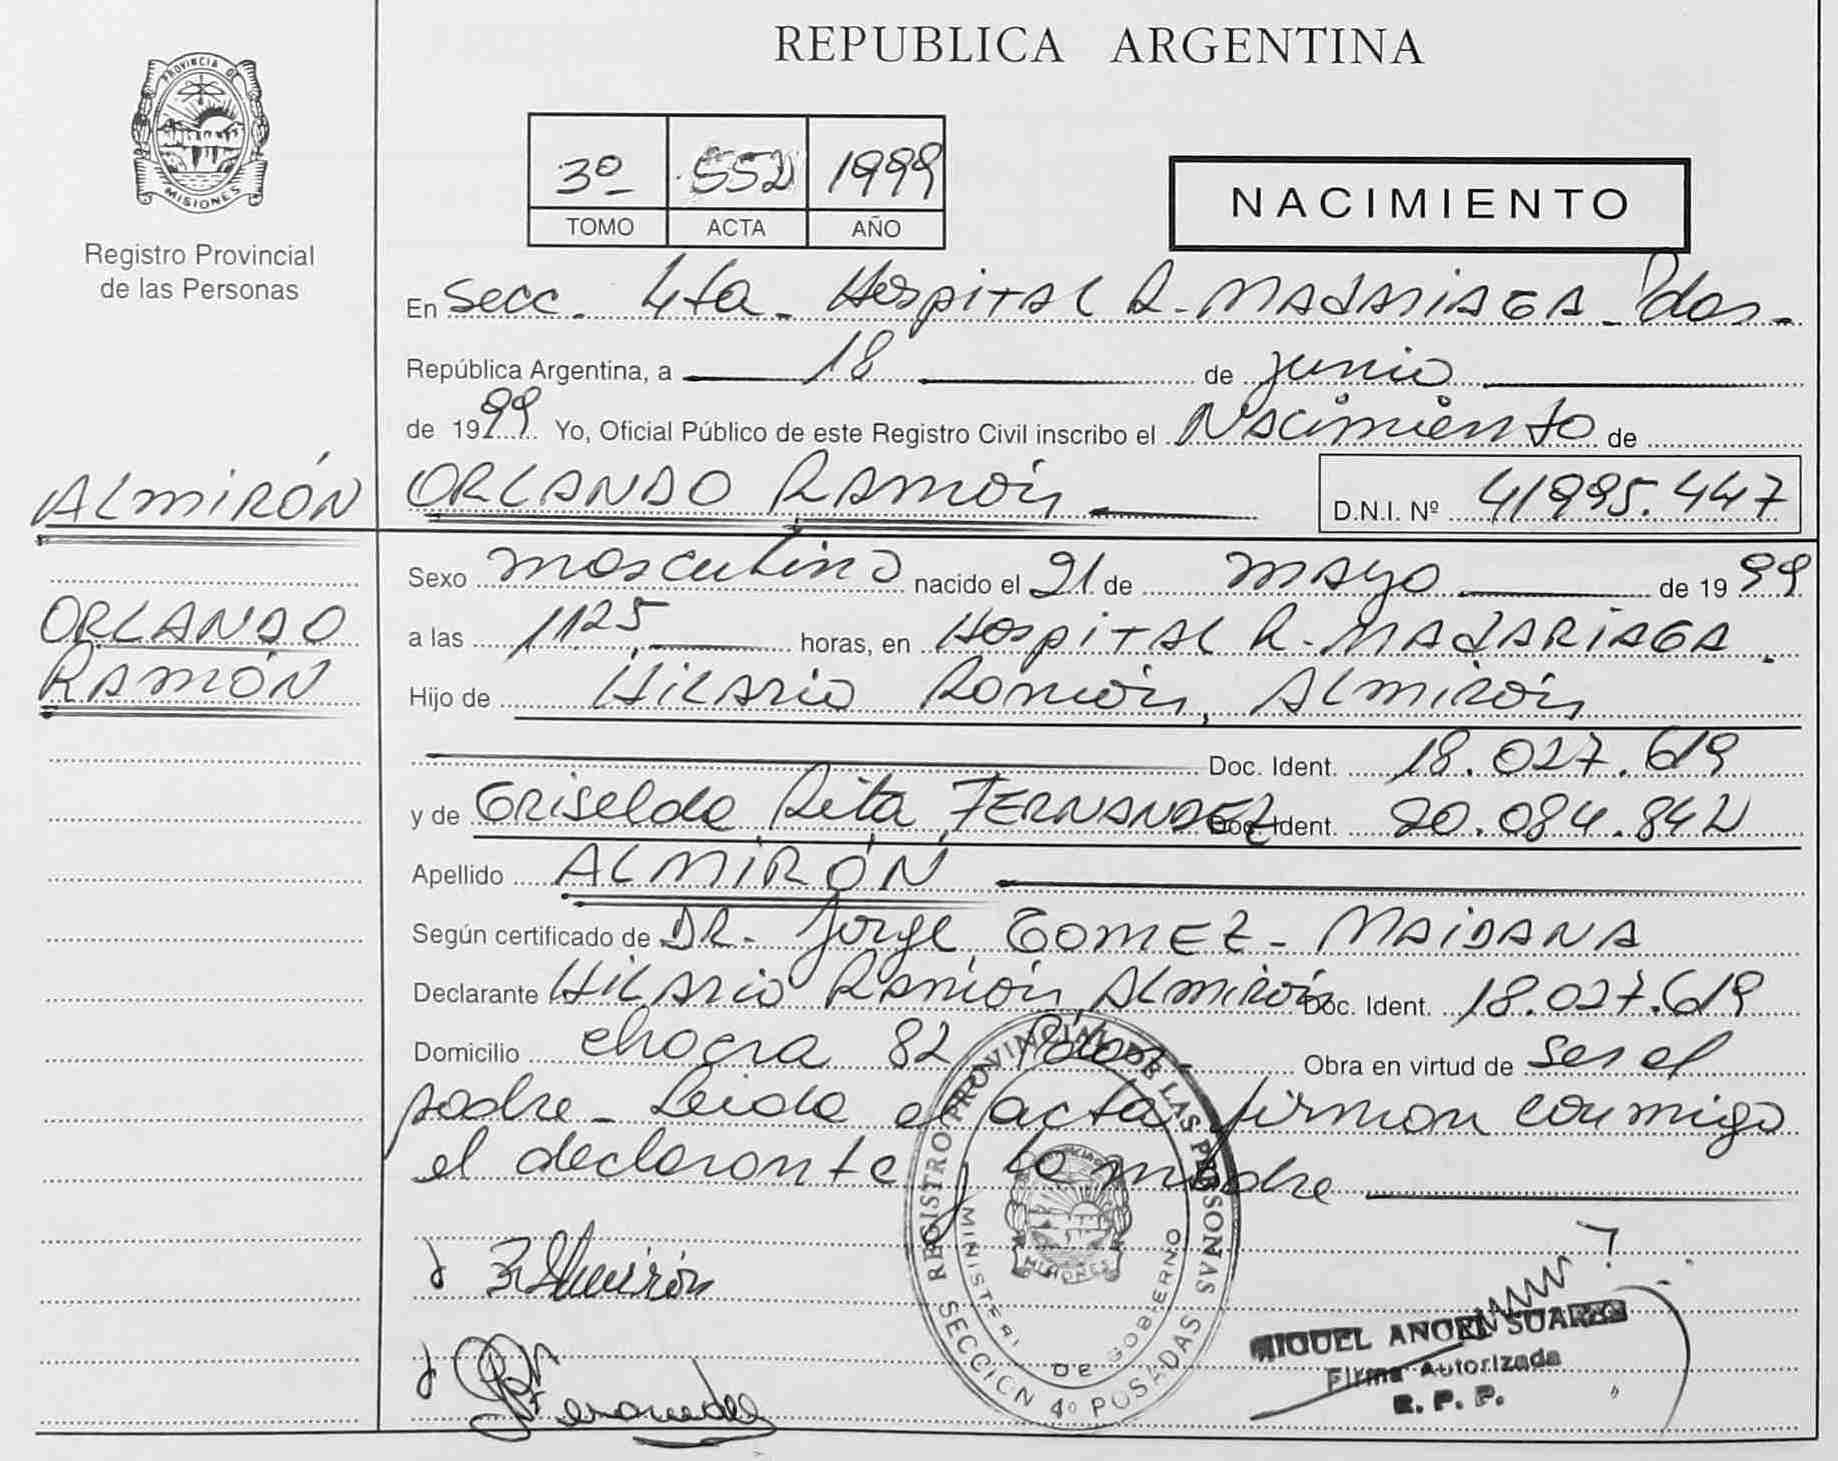 REPUBLICA ARGENTINA
PROVINCIA DE
MISIONES
Registro Provincial
de las Personas
3º 552 1999
TOMO ACTA AÑO
NACIMIENTO
En Secc. 4ta. Hospital R. MADARIAGA - Pdas.
República Argentina, a 18 de junio
de 1999 Yo, Oficial Público de este Registro Civil inscribo el Nacimiento de
ALMIRÓN
ORLANDO RAMÓN D.N.I. Nº 41995.447
ORLANDO
RAMÓN
Sexo masculino nacido el 21 de mayo de 1999
a las 1125 horas, en Hospital R. MADARIAGA.
Hijo de Hilario Ramón, Almirón
Doc. Ident. 18.027.619
y de Griselda Rita FERNANDEZ Doc. Ident. 20.084.842
Apellido ALMIRÓN
Según certificado de DR. Jorge GOMEZ - MAIDANA
Declarante Hilario Ramón Almirón Doc. Ident. 18.027.619
Domicilio chacra 82 Pdas. Obra en virtud de ser el
padre - Leida el acta firman conmigo
el declarante y la madre
REGISTRO PROVINCIAL DE LAS PERSONAS
MINISTERI DE GOBIERNO
MISIONES
SECCION 4º POSADAS
Almirón
Fernandez
MIGUEL ANGEL SUAREZ
Firma Autorizada
R. P. P.